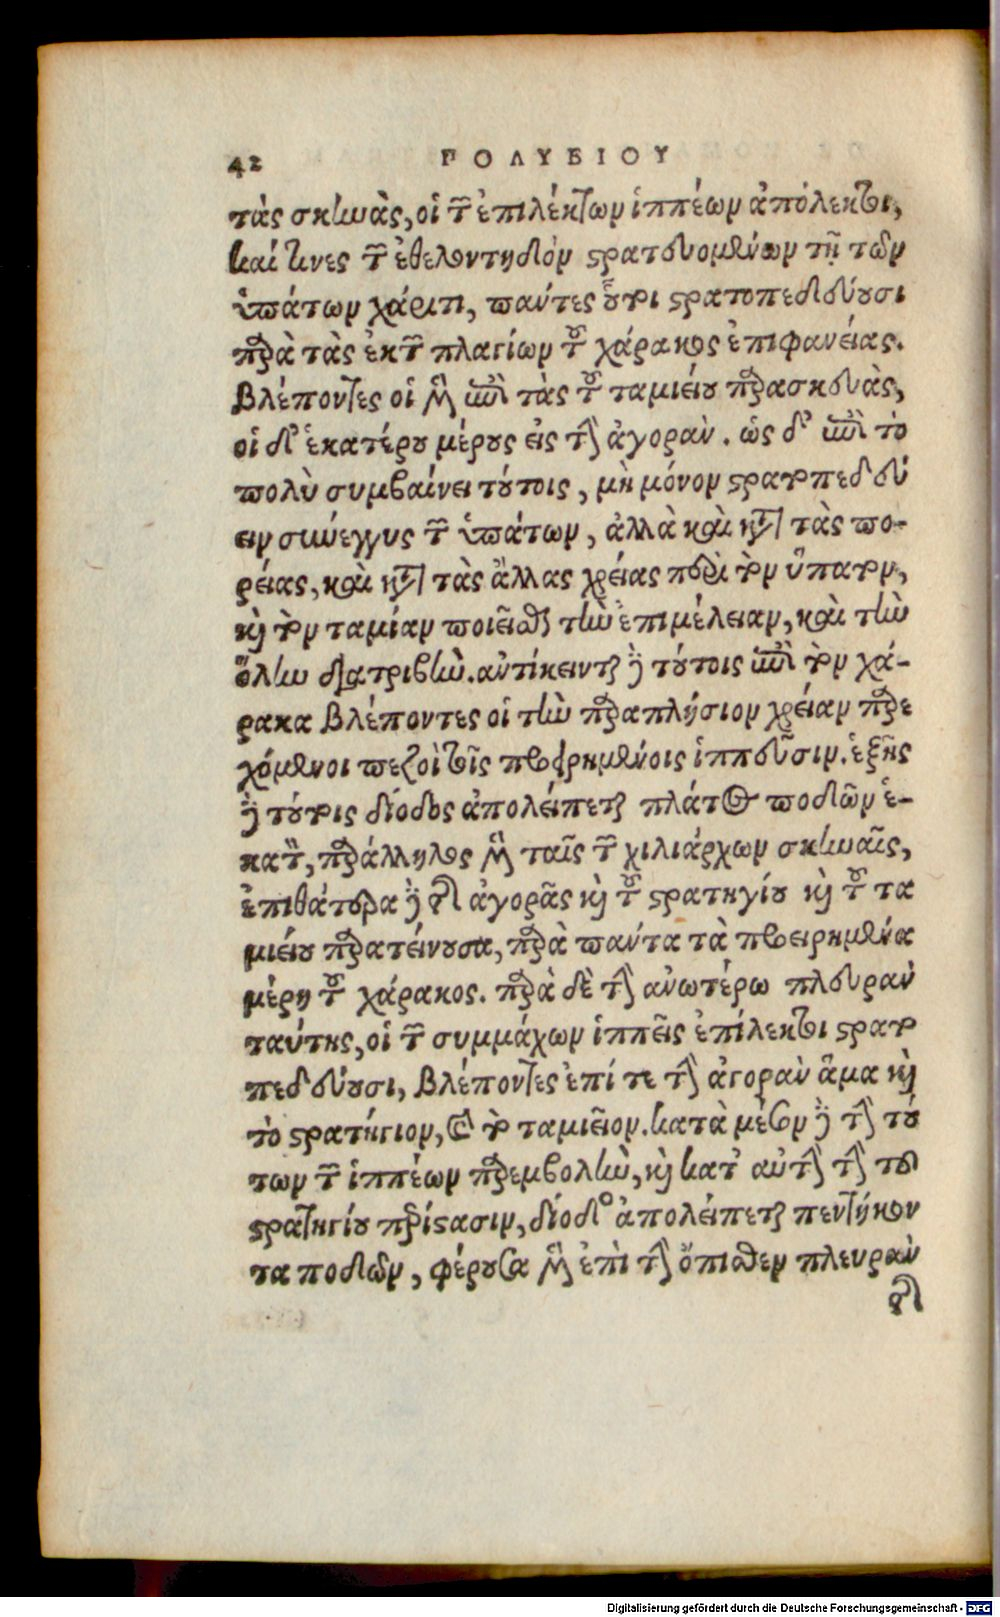 42 ΠΟΛΥΒΙΟΥ
τὰς σκηνὰς, οἱ τῶν ἐπιλέκτων ἱππέων ἀπόλεκτοι,
καί τινες τῶν ἐθελοντηδὸν στρατευομένων τῇ τῶν
ὑπάτων χάριτι, πάντες οὗτοι στρατοπεδεύουσι
παρὰ τὰς ἐκ τῶν πλαγίων τοῦ χάρακος ἐπιφανείας.
βλέποντες οἱ μὲν ἐπὶ τὰς τοῦ ταμιείου παρασκευὰς,
οἱ δ' ἑκατέρου μέρους εἰς τὴν ἀγοράν. ὡς δ' ἐπὶ τὸ
πολὺ συμβαίνει τούτοις, μὴ μόνον στρατοπεδεύ
ειν σύνεγγυς τῶν ὑπάτων, ἀλλὰ καὶ κατὰ τὰς πο-
ρείας, καὶ κατὰ τὰς ἄλλας χρείας περὶ τὸν ὕπατον,
καὶ τὸν ταμίαν ποιεῖσθαι τὴν ἐπιμέλειαν, καὶ τὴν
ὅλην διατριβὴν. ἀντίκεινται δὲ τούτοις ἐπὶ τὸν χά-
ρακα βλέποντες οἱ τὴν παραπλήσιον χρείαν παρε
χόμενοι πεζοὶ τοῖς προειρημένοις ἱππεῦσιν. ἑξῆς
δὲ τούτοις δίοδος ἀπολείπεται πλάτος ποδῶν ἑ-
κατὸν, παράλληλος μὲν ταῖς τῶν χιλιάρχων σκηναῖς,
ἐπιθάτερα δὲ τῆς ἀγορᾶς καὶ τοῦ στρατηγίου καὶ τοῦ τα
μιείου παρατείνουσα, παρὰ πάντα τὰ προειρημένα
μέρη τοῦ χάρακος. παρὰ δὲ τὴν ἀνωτέρω πλευρὰν
ταύτης, οἱ τῶν συμμάχων ἱππεῖς ἐπίλεκτοι στρατο
πεδεύουσι, βλέποντες ἐπί τε τὴν ἀγορὰν ἅμα καὶ
τὸ στρατήγιον, καὶ τὸ ταμιεῖον. κατὰ μέσον δὲ τὴν τού
των τῶν ἱππέων παρεμβολὴν, καὶ κατ' αὐτὴν τὴν τοῦ
στρατηγίου περίστασιν, δίοδος ἀπολείπεται πεντήκον
τα ποδῶν, φέρουσα μὲν ἐπὶ τὴν ὄπισθεν πλευρὰν
τῆς
Digitalisierung gefördert durch die Deutsche Forschungsgemeinschaft - DFG